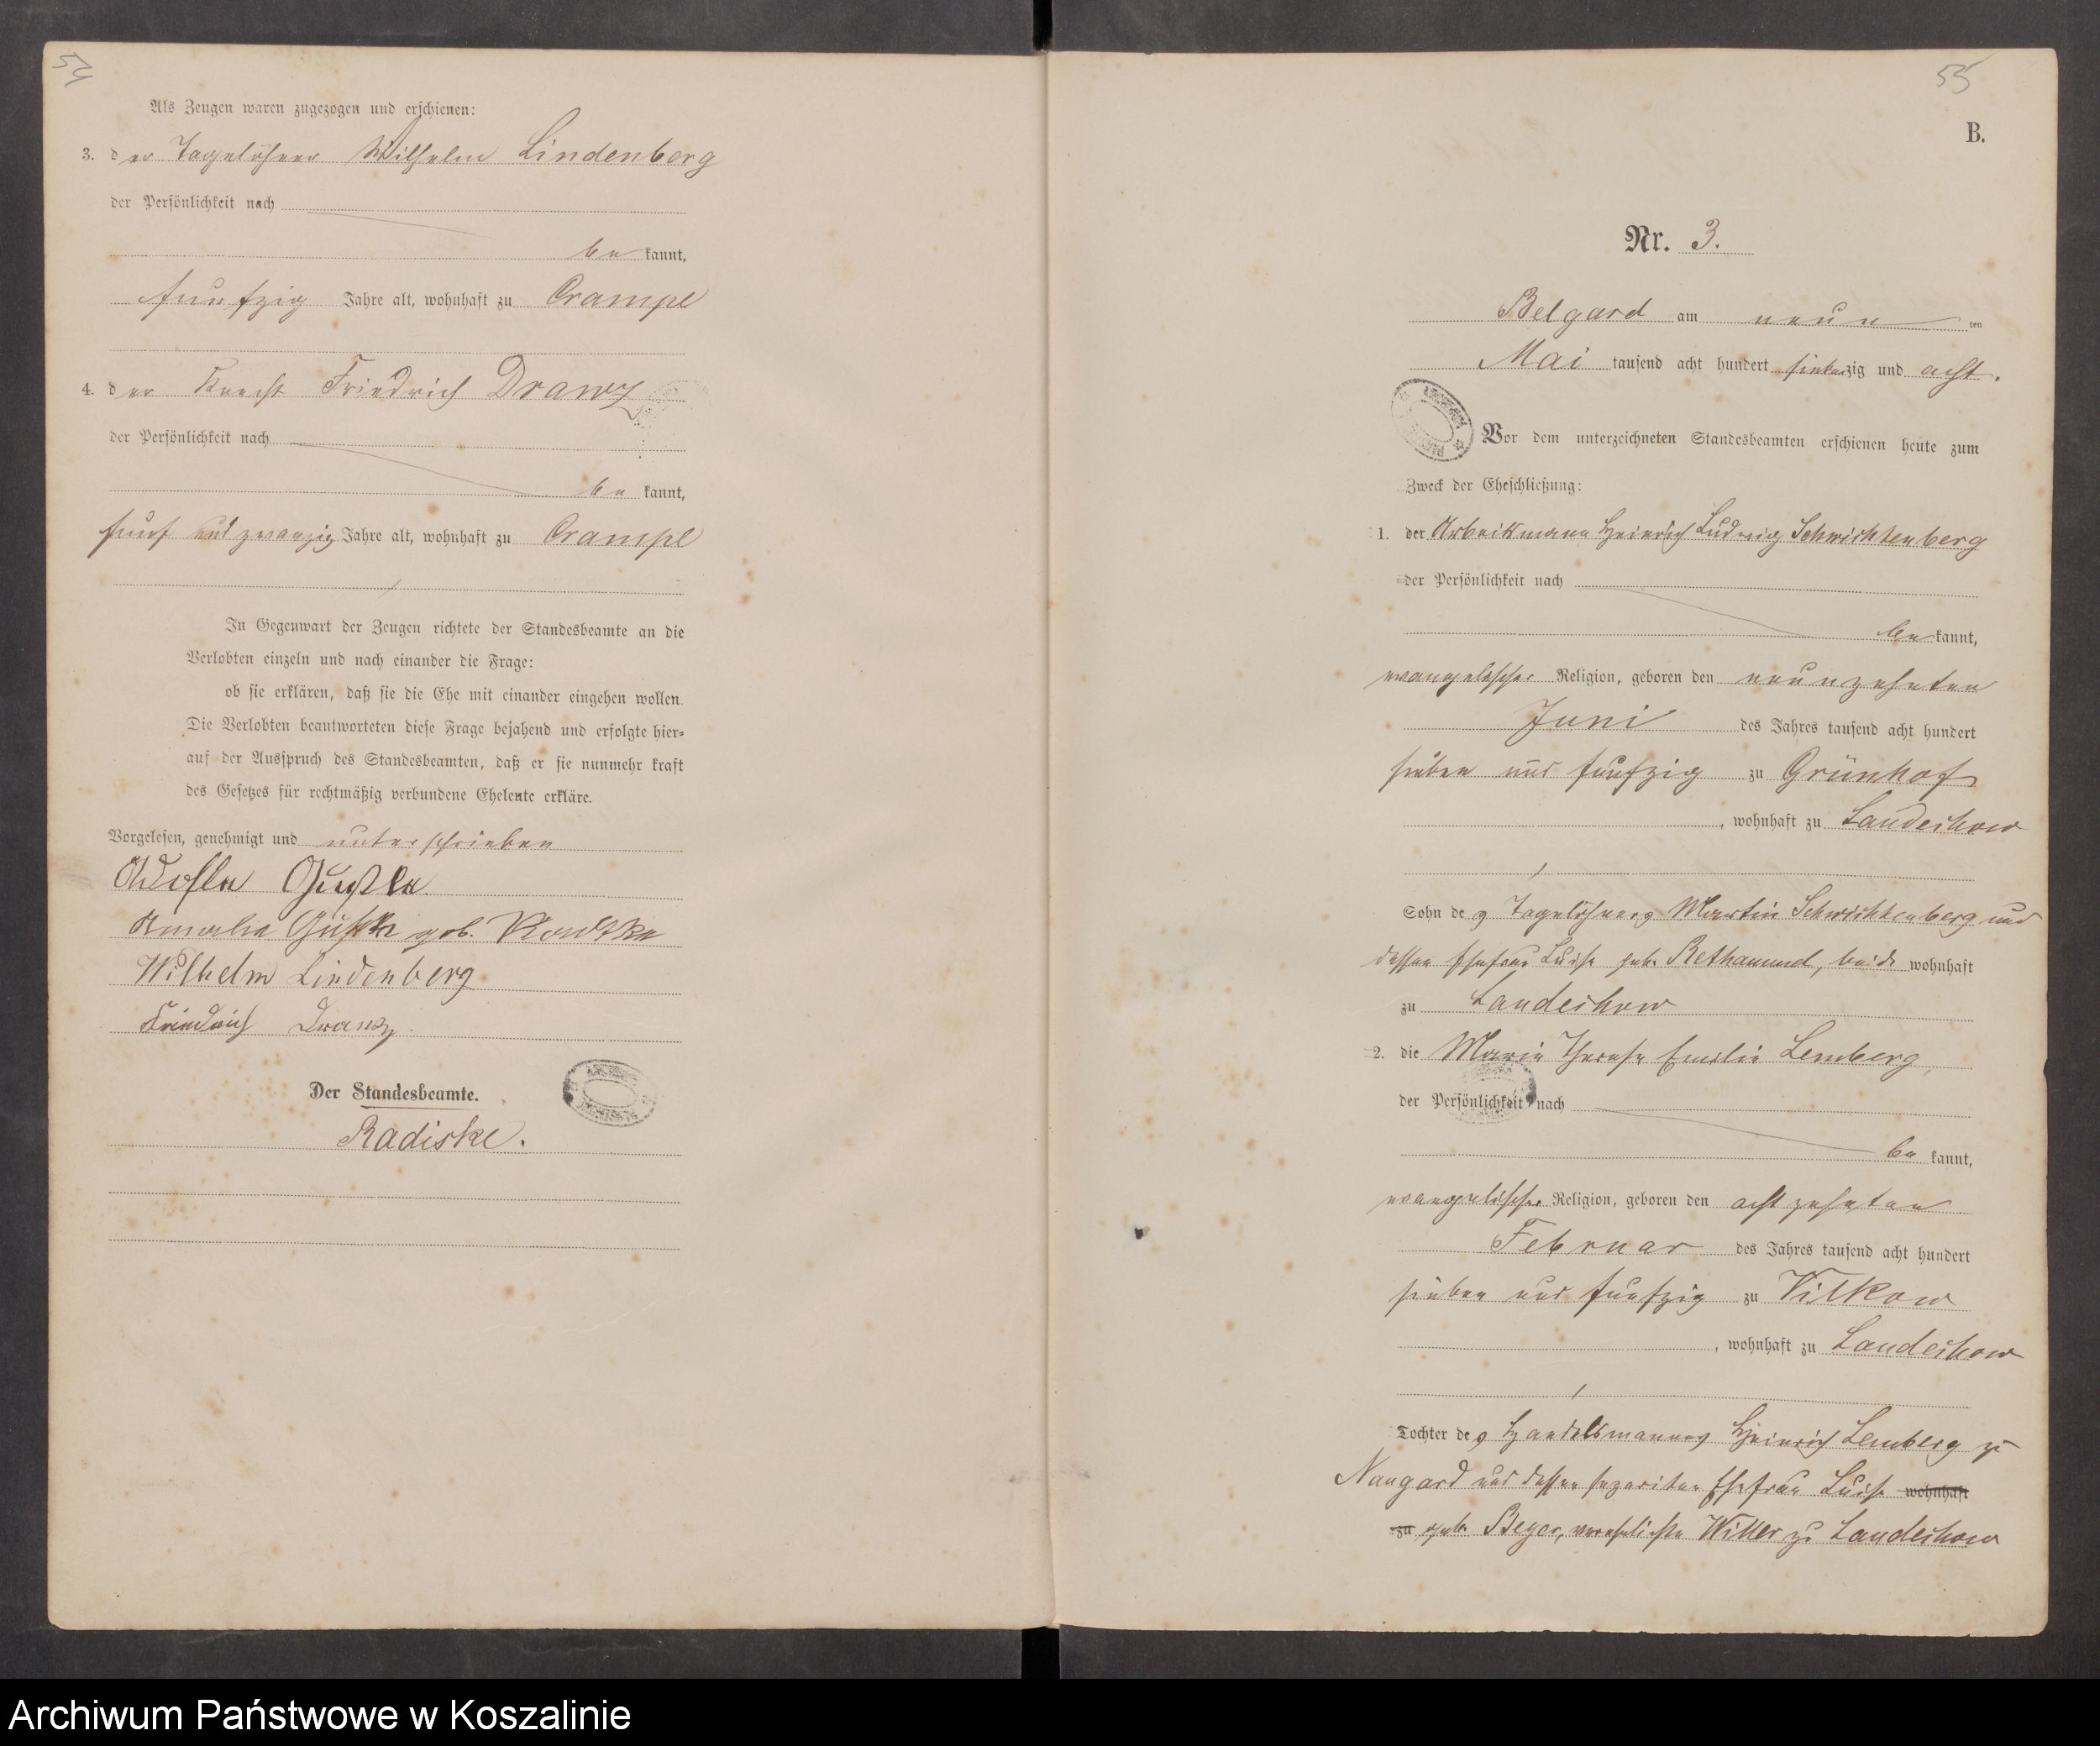 54
Als Zeugen waren zugezogen und erschienen:
3. der Tagelöhner Wilhelm Lindenberg
der Persönlichkeit nach
be kannt,
funfzig Jahre alt, wohnhaft zu Crampe
4. der Knecht Friedrich Drawz
der Persönlichkeit nach
be kannt,
fünf und zwanzig Jahre alt, wohnhaft zu Crampe
In Gegenwart der Zeugen richtete der Standesbeamte an die
Verlobten einzeln und nach einander die Frage:
ob sie erklären, daß sie die Ehe mit einander eingehen wollen.
Die Verlobten beantworteten diese Frage bejahend und erfolgte hier=
auf der Ausspruch des Standesbeamten, daß er sie nunmehr kraft
des Gesetzes für rechtmäßig verbundene Eheleute erkläre.
Vorgelesen, genehmigt und unterschrieben
Amalie geb.
Wilhelm Lindenberg
Friedrich Drawz
Der Standesbeamte.
Radiske.
55
B.
Nr. 3.
Belgard am neun ten
Mai tausend acht hundert siebenzig und acht.
Vor dem unterzeichneten Standesbeamten erschienen heute zum
Zweck der Eheschließung:
1. der Arbeitsmann Heinrich Ludwig Schwichtenberg
der Persönlichkeit nach
be kannt,
evangelischer Religion, geboren den neunzehnten
Juni des Jahres tausend acht hundert
sieben und funfzig zu Grünhof
, wohnhaft zu Landechow
Sohn des Tagelöhners Martin Schwichtenberg und
dessen Ehefrau Luise geb. beide wohnhaft
zu Landechow
2. die Marie Therese Emilie Lemberg,
der Persönlichkeit nach
be kannt,
evangelischer Religion, geboren den achtzehnten
Februar des Jahres tausend acht hundert
sieben und funfzig zu Vilkow
, wohnhaft zu Landechow
Tochter des Handelsmannes Heinrich Lemberg zu
Naugard und dessen separirten Ehefrau Luise wohnhaft
zu geb. Beyer, verehelichte zu Landechow
Archiwum Państwowe w Koszalinie